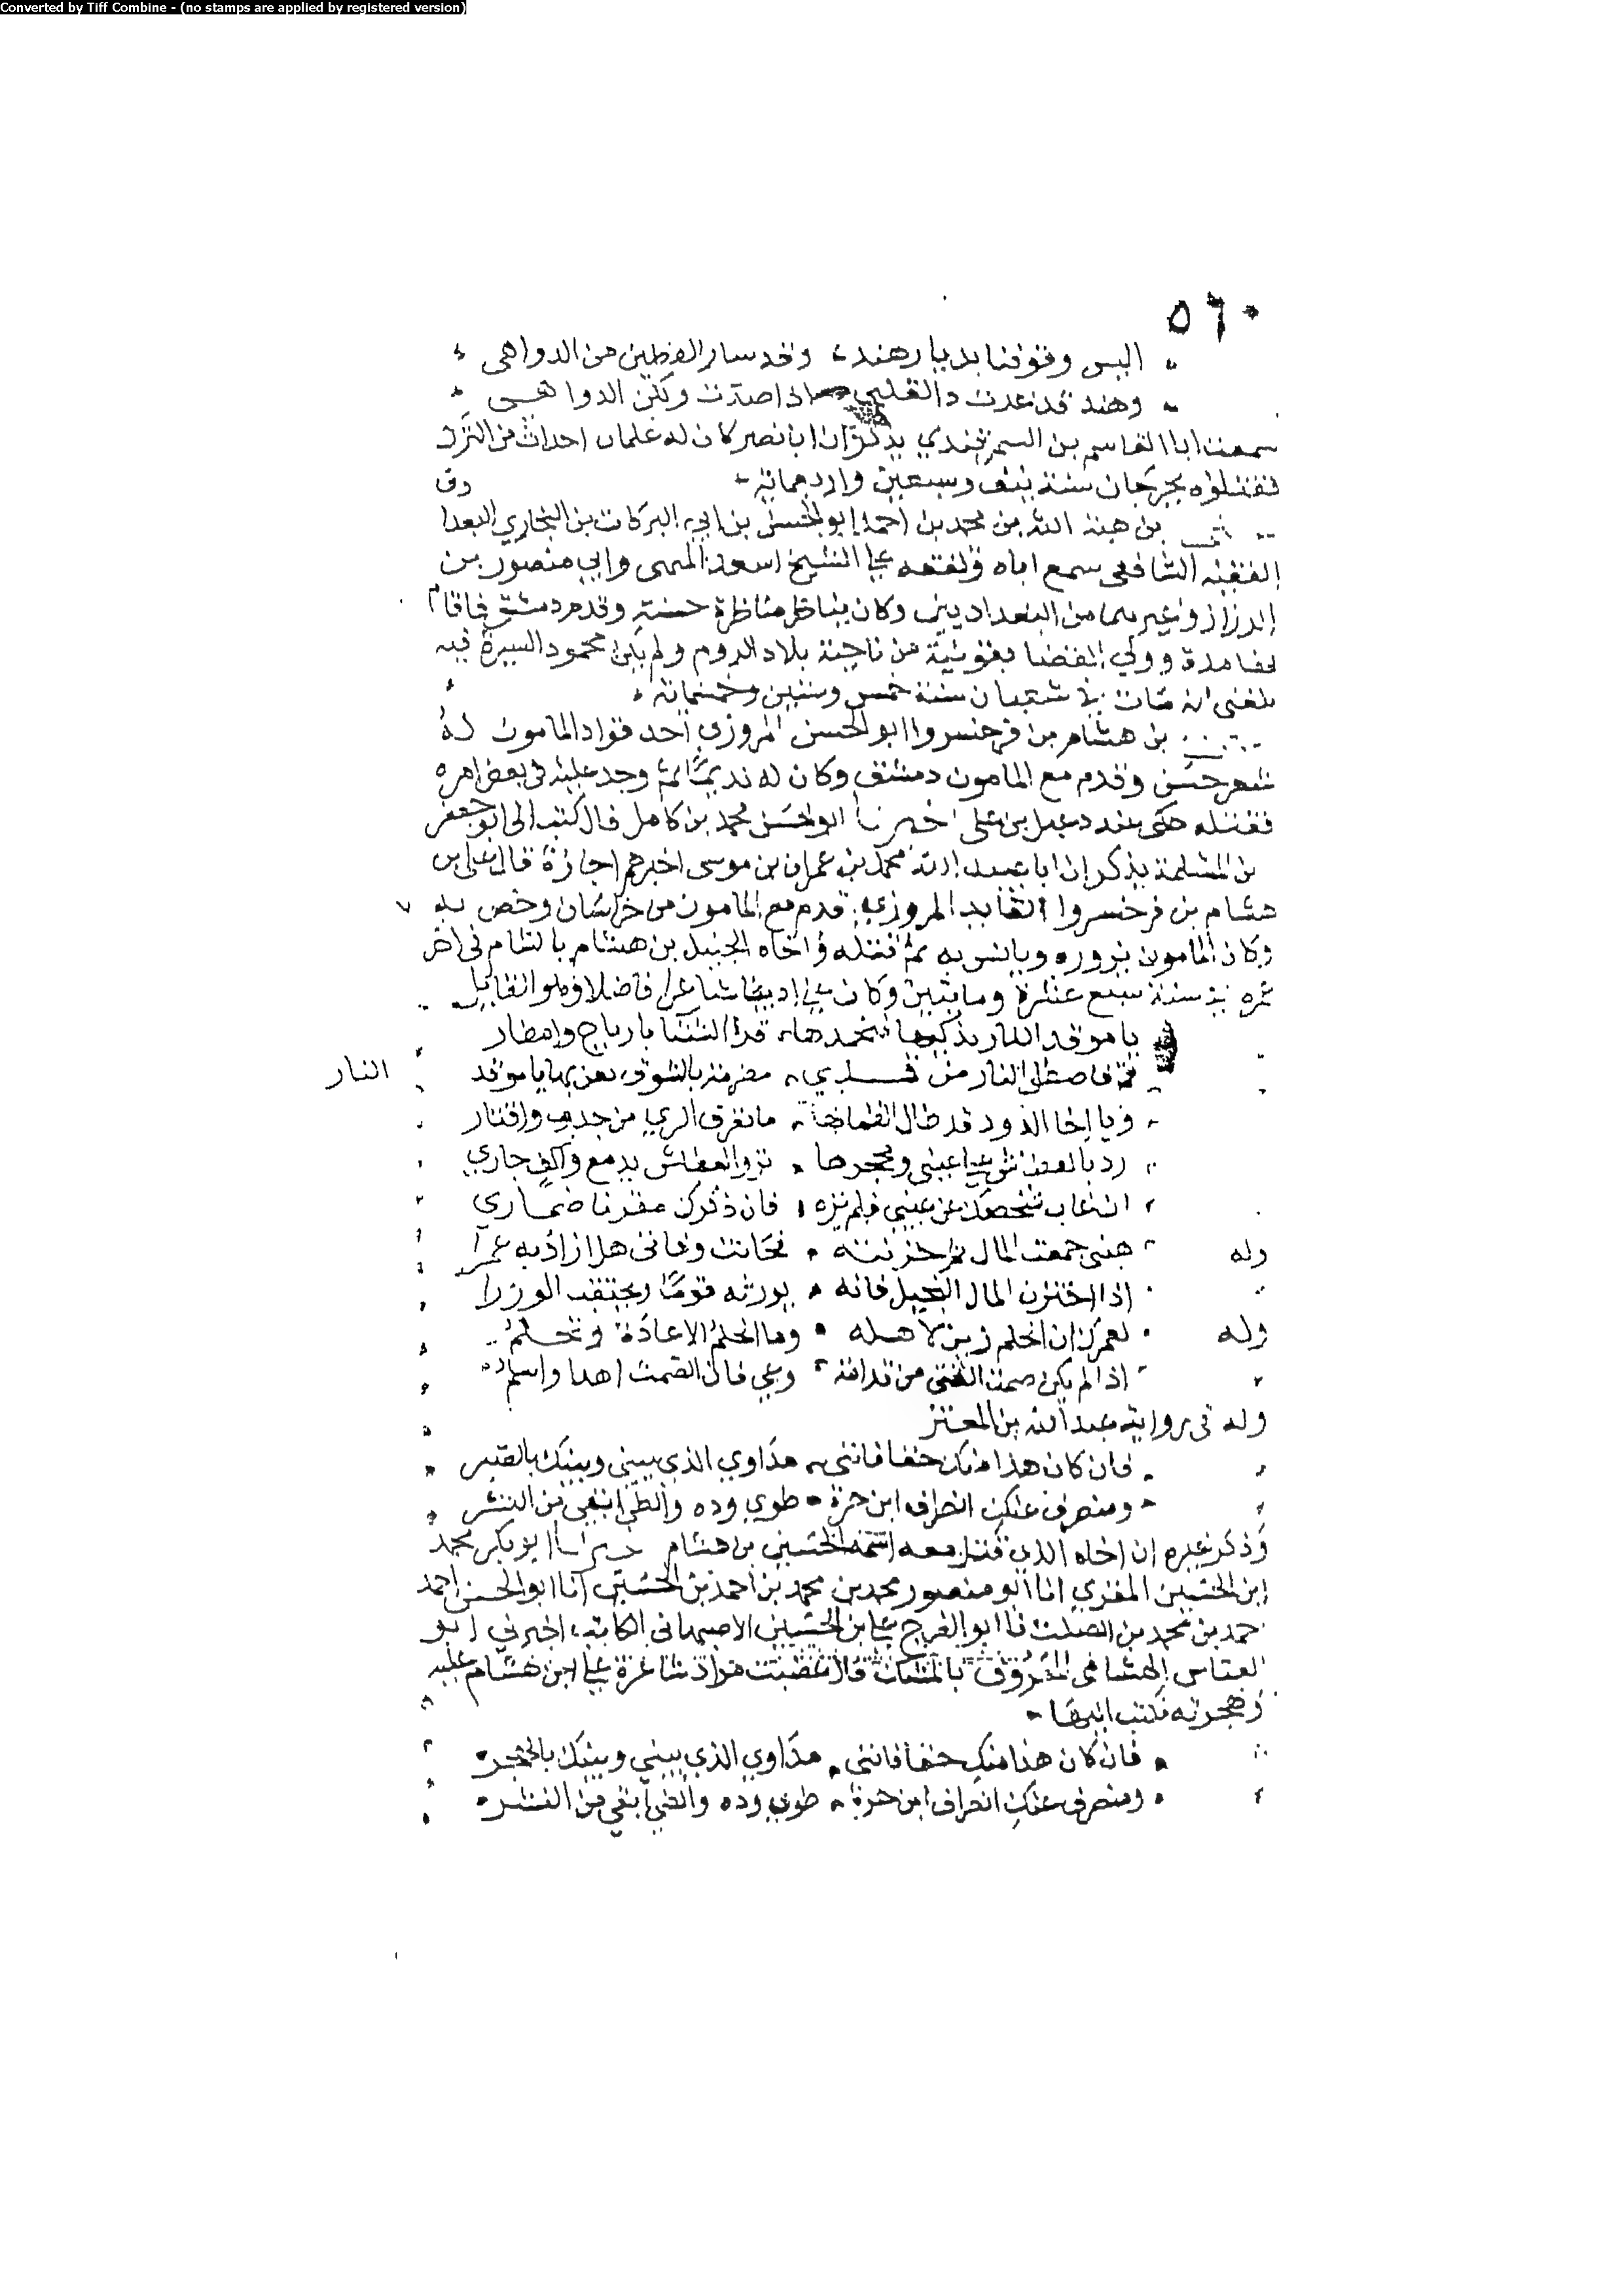 Converted by Tiff Combine - (no stamps are applied by registered version)
٥٦٠
اليس وقوفنا بديار هند وقد سار القطين من الدواهي
وهند قد غدت دا القلبي اذا صدت ولكن الدوا هي
سمعت ابا القاسم بن السمرقندي يذكر ان ابا نصر كان له غلمان احداث من الترك
فقتلوه بجرجان سنة نيف وسبعين واربعمائة
بن هبة الله بن محمد بن احمد ابو الحسن بن ابي البركات بن البخاري البغدا
الفقيه الشافعي سمع اباه وتفقه على الشيخ اسعد الميهني وابي منصور بن
الرزاز وغيرهما من البغداديين وكان يناظر مناظرة حسنة وقدم دمشق فاقام
بها مدة وولي القضا بقونية من ناحية بلاد الروم ولم يكن محمود السيرة فيه
بلغني انه مات في شعبان سنة خمس وستين وخمسمائة
بن هشام بن فرخسروا ابو الحسن المروزي احد قواد المامون له
شعر حسن وقدم مع المامون دمشق وكان له نديما ثم وجد عليه في بعض امره
فقتله حكى عنه دعبل بن علي اخبرنا ابو الحسن محمد بن كامل قال كتب الى ابو جعفر
بن المسلمة يذكر ان ابا عبيد الله محمد بن عمران بن موسى اخبرهم اجازة قال علي بن
هشام بن فرخسروا القايد المروزي قدم مع المامون من خراسان وخص به
وكان المامون يزوره ويانس به ثم قتله واخاه الجنيل بن هشام بالشام في اخر
عمره في سنة سبع عشرة ومايتين وكان علي اديبا شاعرا فاضلا وهو القايل
يا موقد النار يذكيها فيخمدها قر الشتا بارياح وامطار
قم فاصطل النار من قلبي مضرمة بالشوق تغن بها يا موقد
النار
ويا اخا الذود قد طال الظما بها ما تعرف الري من جدب واقتار
رد بالعطاش على عيني ومحجرها تروا العطاش بدمع واكف جاري
ان غاب شخصك عن عيني فلم تره فان ذكرك مقرنا ضماري
وله هبني جمعت المال ثم خزنته فحانت وفاتي هل ازاد به عمرا
اذا اختزن المال البخيل فانه يورثه قوما ويحتقب الوزرا
وله لعمرك ان الحلم زين لاهله وما الحلم الا عادة وتحلم
اذا لم يكن صمت الفتى من ندامة وعي فان الصمت اهدا واسلم
وله في رواية عبد الله بن المعتز
فان كان هذا منك حقا فانني مداوي الذي بيني وبينك بالهجر
ومنصرف عنك انصراف ابن حرة طوى وده والطي ابقى من النشر
وذكر غيره ان اخاه الذي قتل معه اسمه الحسين بن هشام اخبرنا ابو بكر محمد
ابن الحسين المقري انا ابو منصور محمد بن محمد بن احمد بن الحسين انا ابو الحسن احمد
حمد بن محمد بن الصلت نا ابو الفرج علي ابن الحسين الاصبهاني الكاتب اخبرني ابو
العباس الهشامي المعروف بالمشك قال غضبت مراد شاعرة علي ابن هشام عليه
وهجرته فكتب اليها
فان كان هذا منك حقا فانني مداوي الذي بيني وبينك بالهجر
ومنصرف عنك انصراف ابن حرة طوى وده والطي ابقى من النشر